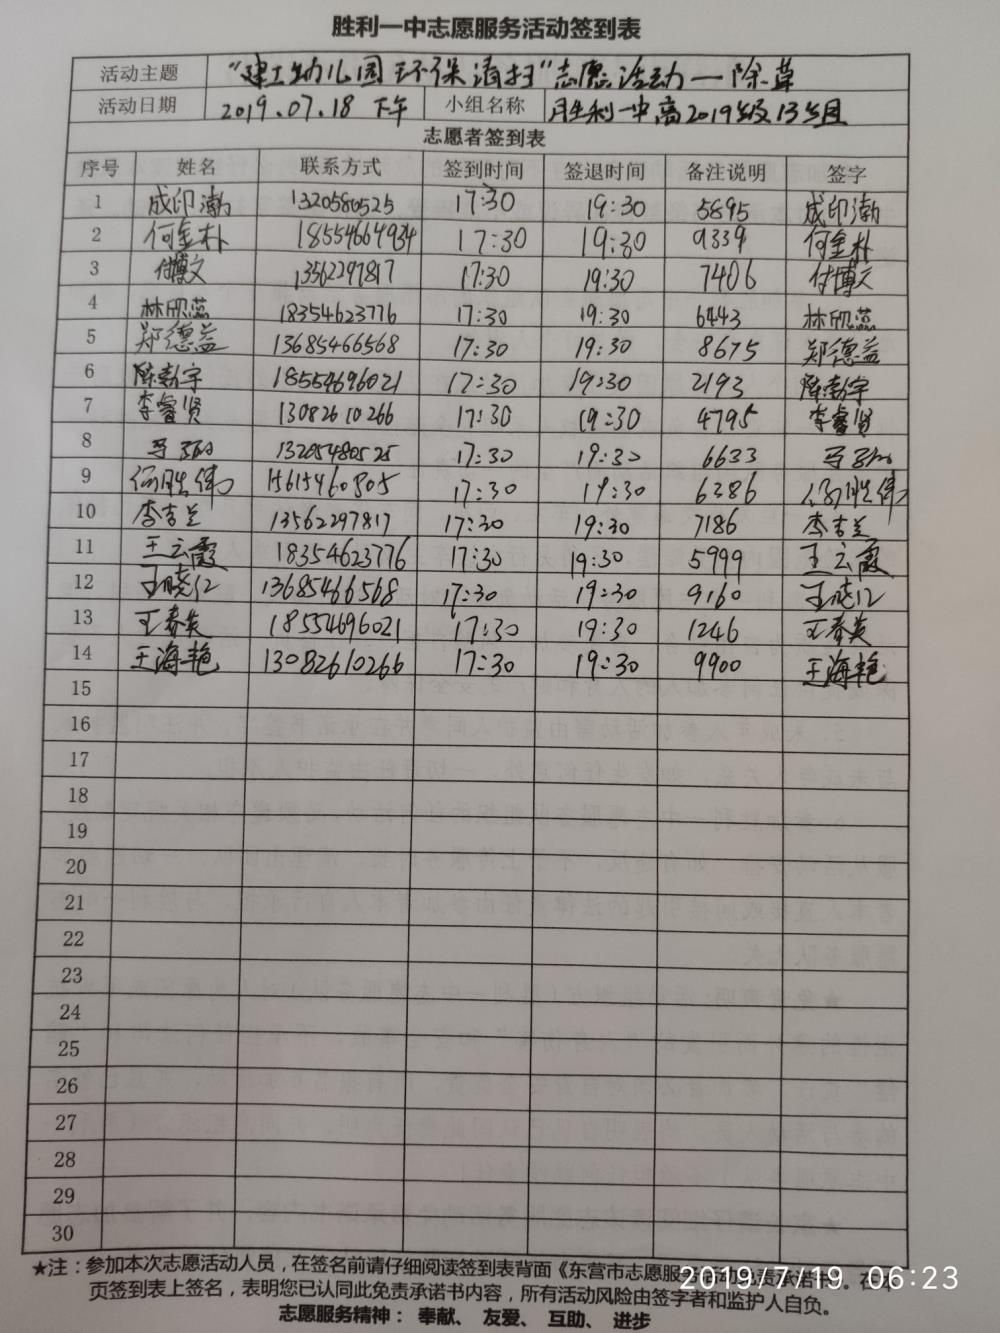 胜利一中志愿服务活动签到表
活动主题 “建工幼儿园环保清扫”志愿活动—除草
活动日期 2019.07.18 下午 小组名称 胜利一中高2019级13组
志愿者签到表
序号 姓名 联系方式 签到时间 签退时间 备注说明 签字
1 成印渤 1320580525 17:30 19:30 5895 成印渤
2 何金朴 18554664934 17:30 19:30 9339 何金朴
3 付博文 13562297817 17:30 19:30 7406 付博文
4 林欣蕊 18354623776 17:30 19:30 6443 林欣蕊
5 郑德益 13685466568 17:30 19:30 8675 郑德益
6 陈勃宇 18554696021 17:30 19:30 2193 陈勃宇
7 李睿贤 13082610266 17:30 19:30 4795 李睿贤
8 13205480525 17:30 19:30 6633
9 何胜伟 15615460805 17:30 19:30 6386 何胜伟
10 李吉兰 13562297817 17:30 19:30 7186 李吉兰
11 王云霞 18354623776 17:30 19:30 5999 王云霞
12 王晓红 13685466568 17:30 19:30 9160 王晓红
13 王春英 18554696021 17:30 19:30 1246 王春英
14 王海艳 13082610266 17:30 19:30 9900 王海艳
15
16
17
18
19
20
21
22
23
24
25
26
27
28
29
30
★注：参加本次志愿活动人员，在签名前请仔细阅读签到表背面《东营市志愿服务活动免责承诺书》。在本
页签到表上签名，表明您已认同此免责承诺书内容，所有活动风险由签字者和监护人自负。
志愿服务精神：奉献、友爱、互助、进步
2019/7/19 06:23